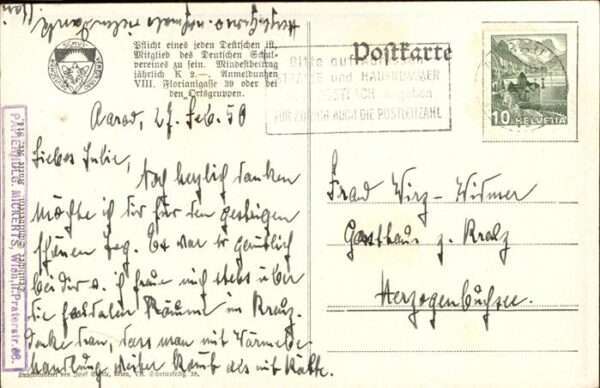 Pflicht eines jeden Deutschen ist,
Mitglied des Deutschen Schul-
vereines zu sein. Mindestbeitrag
jährlich K 2.—. Anmeldungen
VIII. Florianigasse 39 oder bei
den Ortsgruppen.
Postkarte
Bitte
und HAUSNUMMER
angeben
FÜR ZÜRICH AUCH DIE POSTLEITZAHL
10 HELVETIA
27. Feb. 50
Liebes Julie,
herzlich danken
möchte ich dir für den gestrigen
schönen Tag. Es war so gemütlich
bei dir u. ich freue mich stets über
die Räume im Kreuz.
Denke dran, dass man mit Wärmebe-
handlung weiter kommt als mit Kälte.
Frau Wirz-Widmer
Gasthaus z. Kreuz
Herzogenbuchsee.
PAPIERHDLG. MICKERTS, Wien, II. Praterstr. 68.